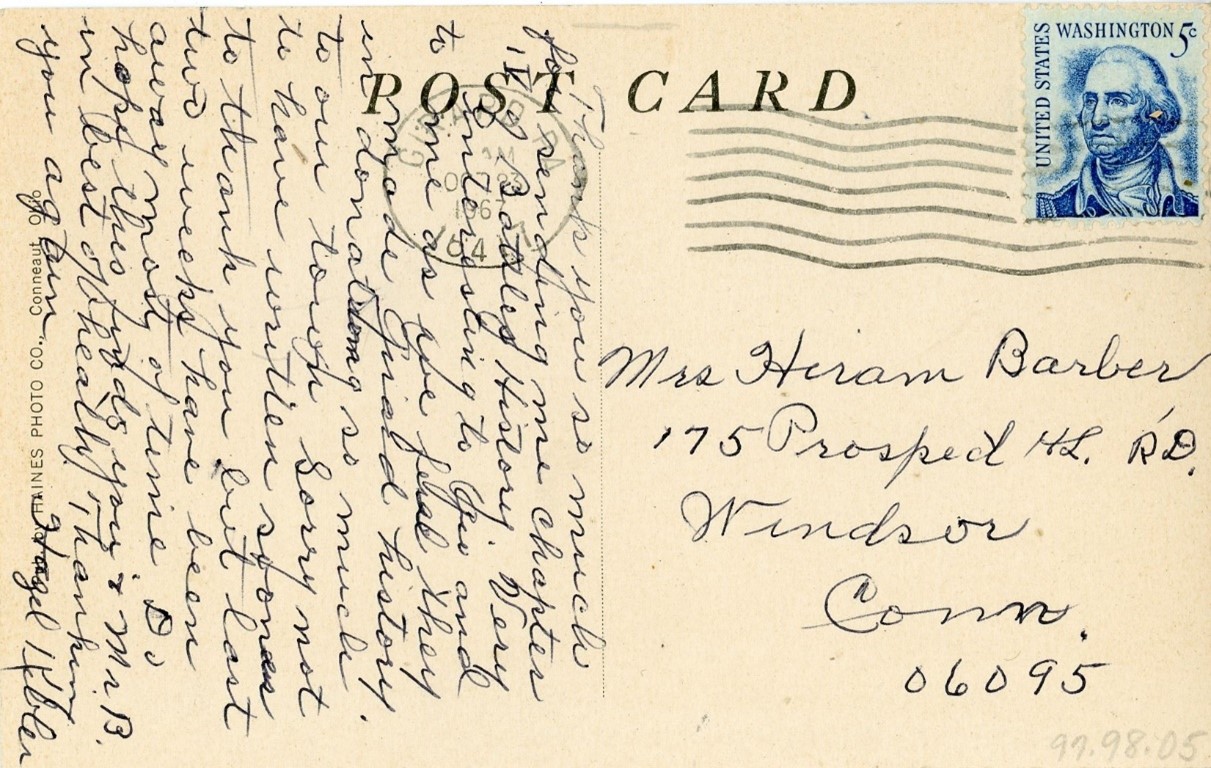 POST CARD
UNITED STATES
WASHINGTON 5c
GIRARD
AM
OCT 23
1967
Thank you so much
for sending me chapter
IV Battles History. Very
interesting to Gio and
to me as we feel they
made Girard history
in donations so much
to our town. Sorry not
to have written sooner
to thank you but last
two weeks have been
away most of time Do
hope this finds you & Mr. B.
in best of health. Thanking
you again,
Hazel Kibler
HAINES PHOTO CO., Conneaut, Ohio
Mrs Hiram Barber
175 Prospect HL. RD.
Windsor
Conn.
06095
97.98.05